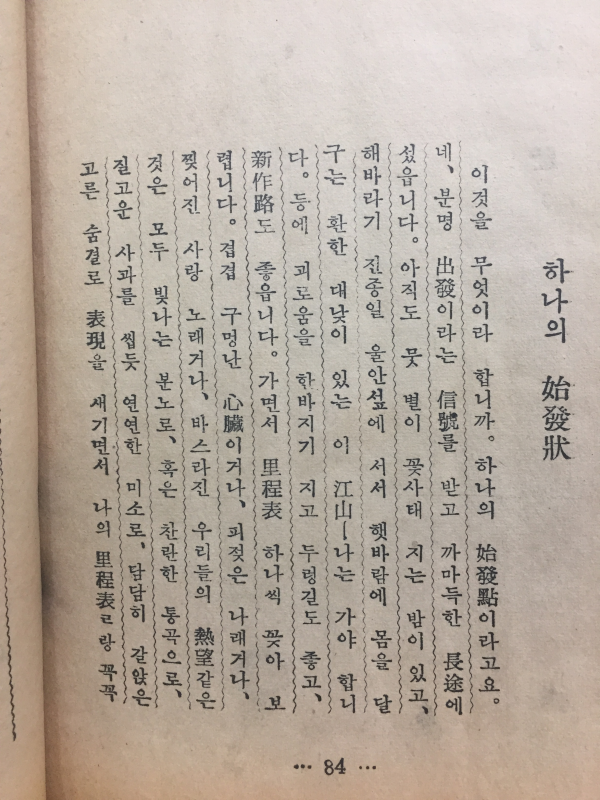 하나의 始發狀
이것을 무엇이라 합니까。하나의 始發點이라고요。
네、분명 出發이라는 信號를 받고 까마득한 長途에
섰읍니다。아직도 뭇 별이 꽃사태 지는 밤이 있고、
해바라기 진종일 울안섶에 서서 햇바람에 몸을 달
구는 환한 대낮이 있는 이 江山ㅡ나는 가야 합니
다。등에 괴로움을 한바지기 지고 두렁길도 좋고、
新作路도 좋읍니다。가면서 里程表 하나씩 꽂아 보
렵니다。겹겹 구멍난 心臟이거나、피젖은 나래거나、
찢어진 사랑 노래거나、바스라진 우리들의 熱望같은
것은 모두 빛나는 분노로、혹은 찬란한 통곡으로、
질고운 사과를 씹듯 연연한 미소로、담담히 같앉은
고른 숨결로 表現을 새기면서 나의 里程表ㄹ랑 꼭꼭
… 84 …